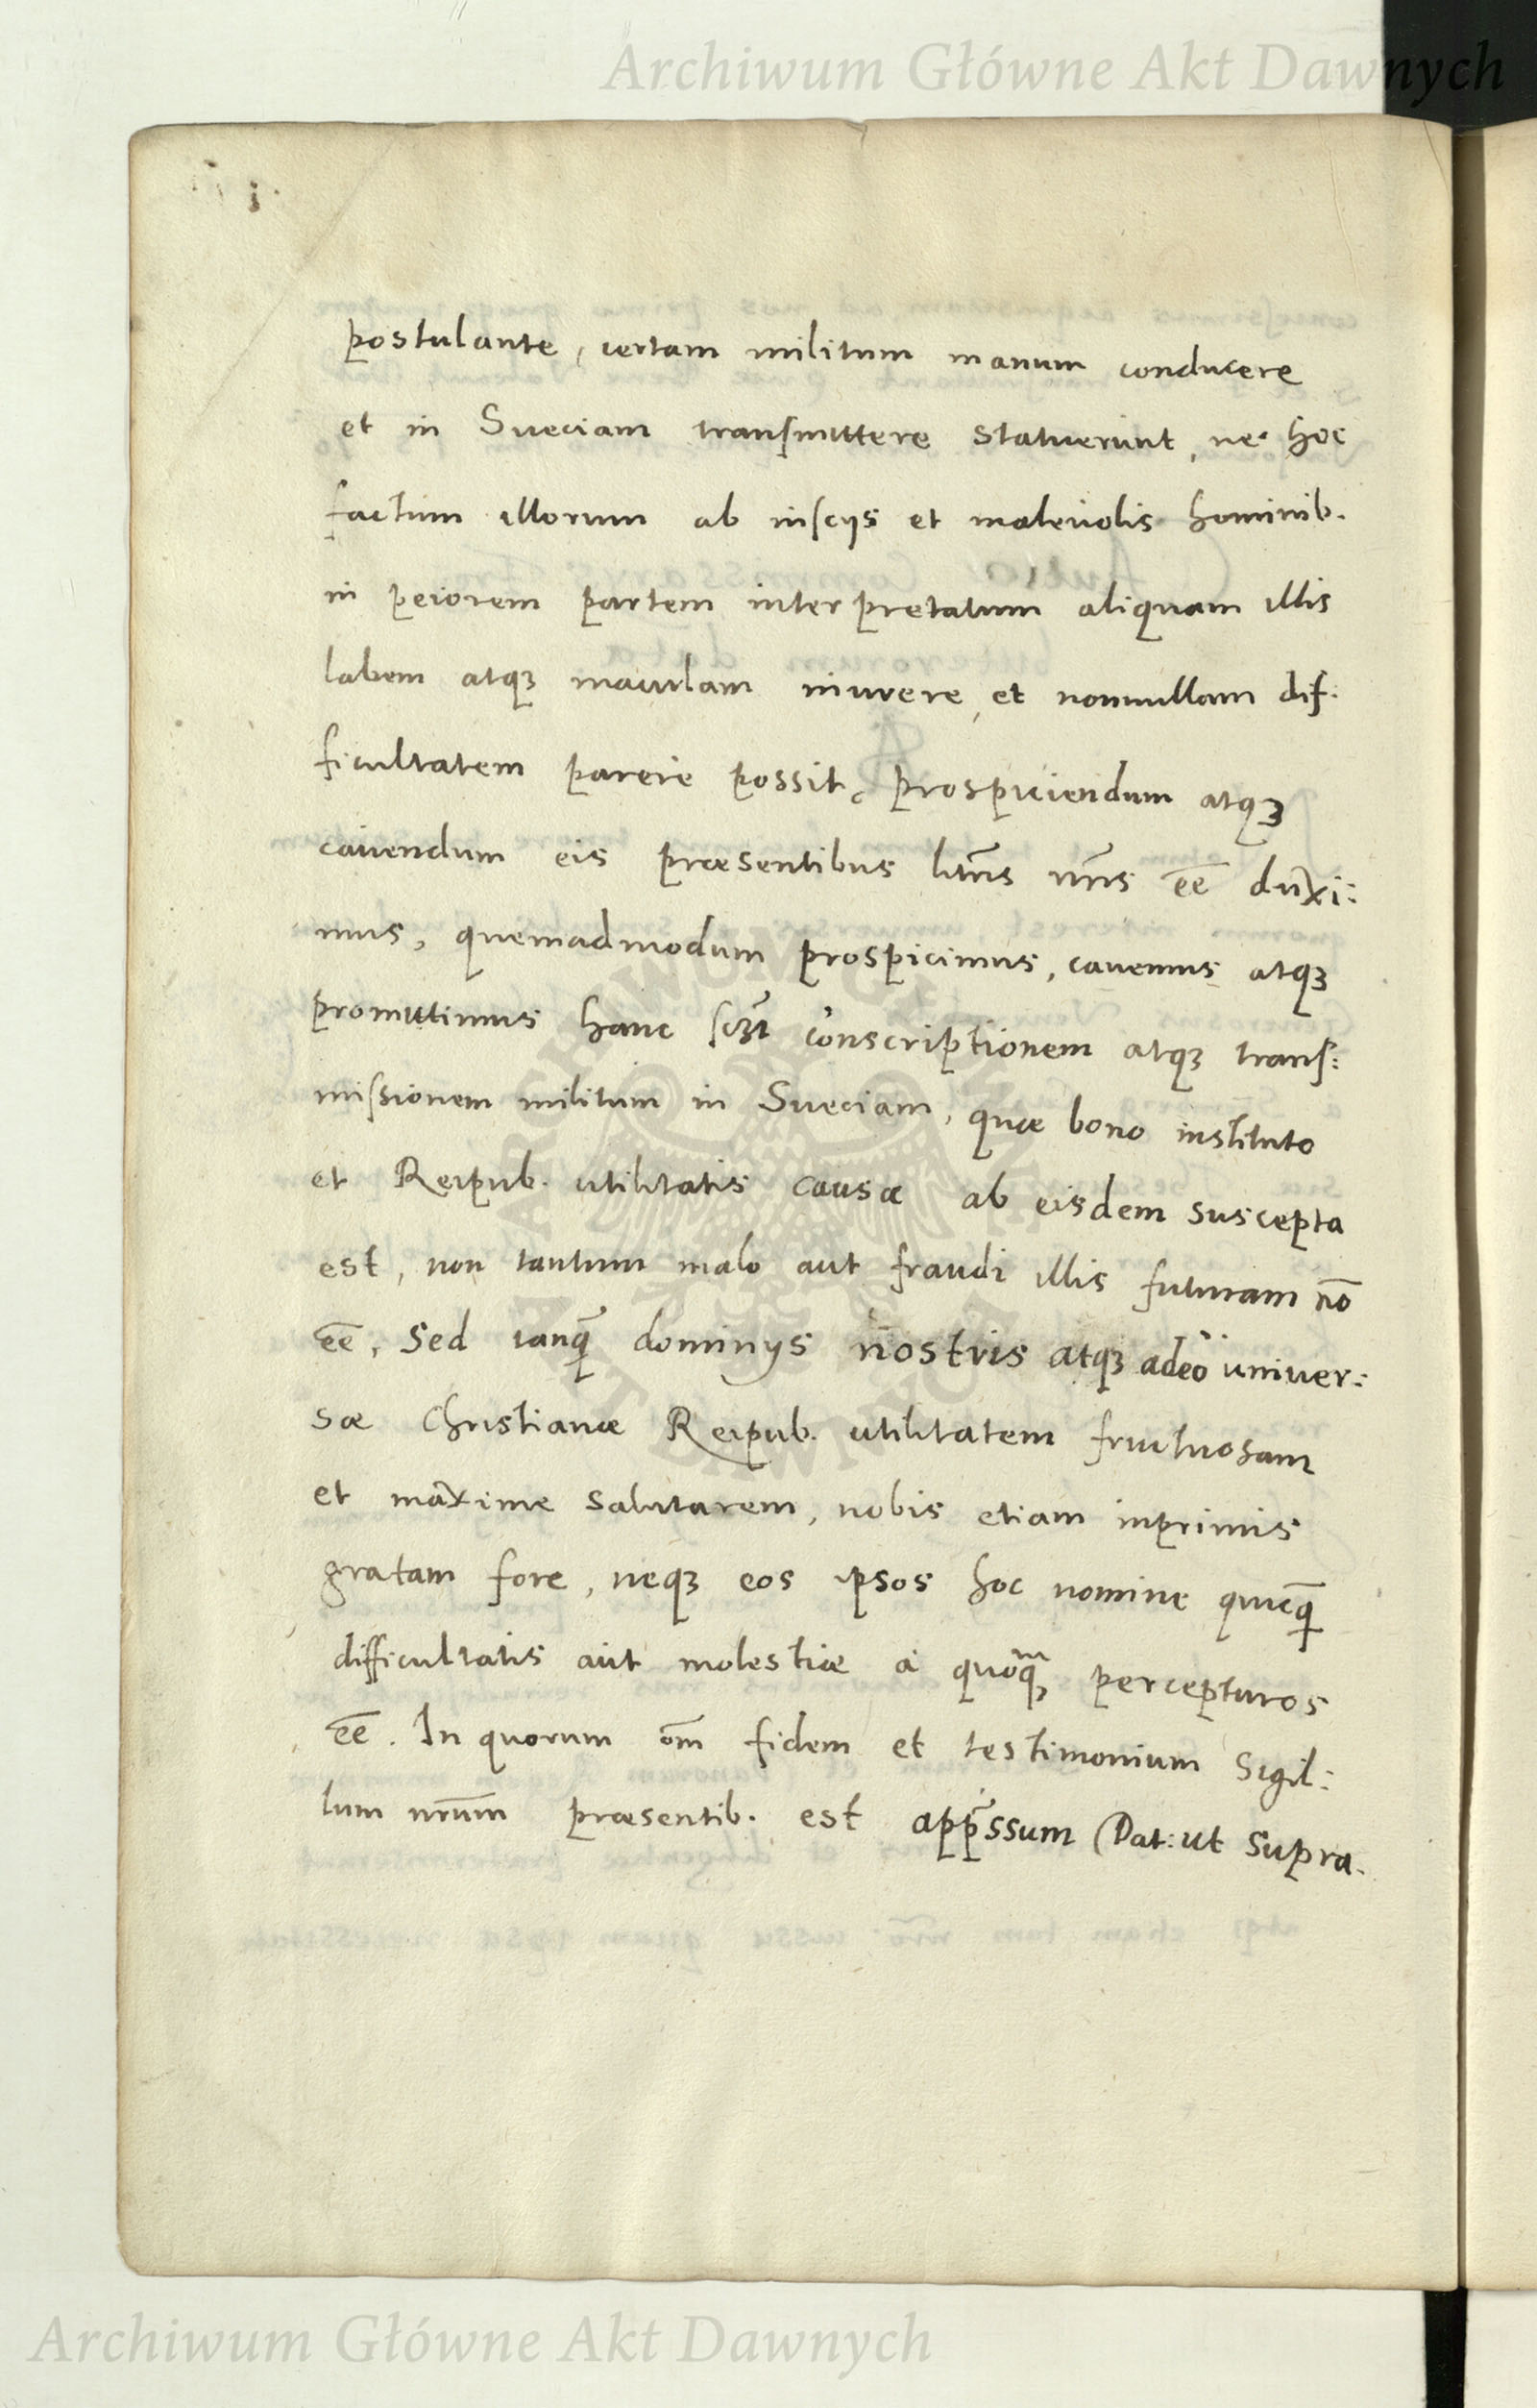 Archiwum Główne Akt Dawnych
postulante, certam militum manum conducere
et in Sueciam transmittere statuerunt, ne hoc
factum illorum ab inscijs et malevolis hominib.
in peiorem partem interpretatum aliquam illis
labem atq3 maculam inurere, et nonnullam dif:
ficultatem parere possit, prospiciendum atq3
cavendum eis præsentibus l̃ris nr̃is ee̅ duxi:
mus, quemadmodum prospicimus, cavemus atq3
promittimus hanc scz̃t conscriptionem atq3 trans:
missionem militum in Sueciam, quæ bono instituto
et Reipub. utilitatis causa ab eisdem suscepta
est, non tantum malo aut fraudi illis futuram nõ
ee̅, Sed tanq̃ dominijs nostris atq3 adeo univer:
sæ Christianæ Reipub. utilitatem fructuosam
et maxime salutarem, nobis etiam inprimis
gratam fore, neq3 eos ipsos hoc nomine quicq̃
difficultatis aut molestiæ à quoq᷃ percepturos
ee̅. In quorum om̅ fidem et testimonium Sigil:
lum nr̃um præsentib. est app̃ssum Dat: ut supra.
ARCHIWUM GŁÓWNE
AKT DAWNYCH
Archiwum Główne Akt Dawnych